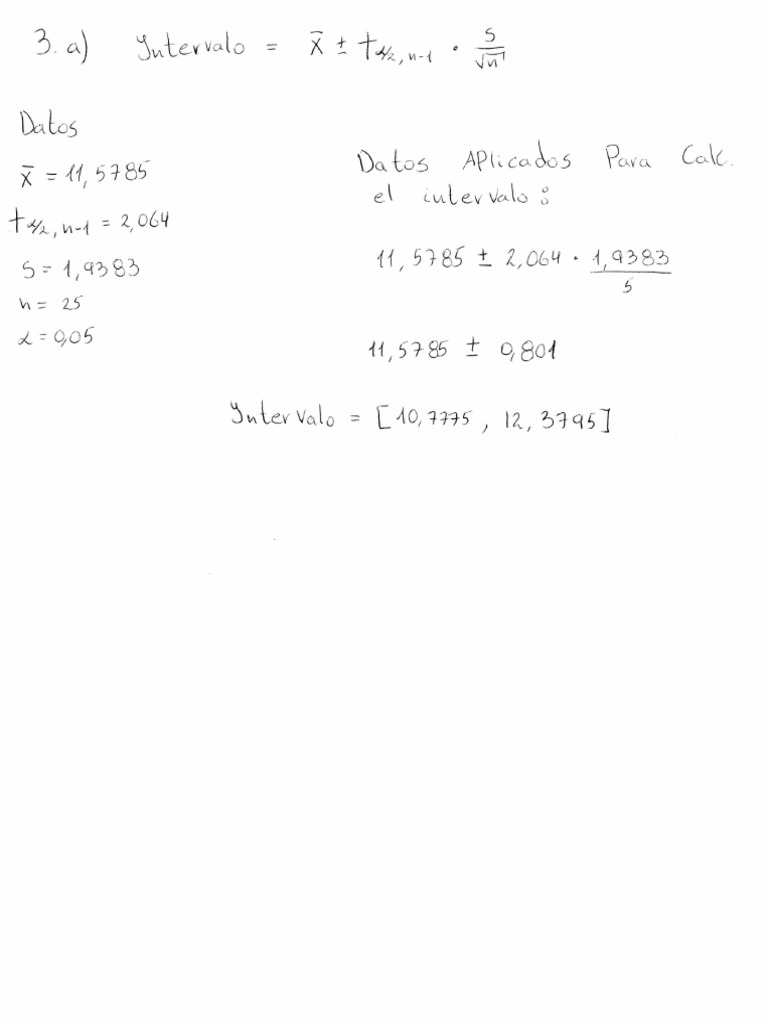 3. a) Intervalo = x̄ ± t α/2, n-1 · S/√n
Datos
x̄ = 11,5785
t α/2, n-1 = 2,064
S = 1,9383
n = 25
α = 0,05
Datos APlicados Para Calc.
el intervalo:
11,5785 ± 2,064 · 1,9383/5
11,5785 ± 0,801
Intervalo = [10,7775 , 12,3795]